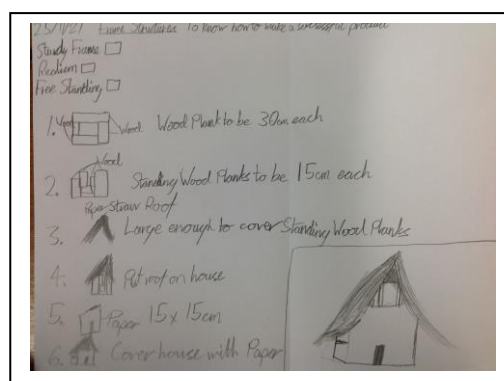 25/11/21 Frame Structures To know how to make a successful product
Sturdy Frame
Free Standing
1. Wood Wood Wood Plank to be 30cm each
2. Wood Standing Wood Planks to be 15cm each
Paper Straw Roof
3. Large enough to cover Standing Wood Planks
4. Put roof on house
5. Paper 15 x 15cm
6. Cover house with Paper